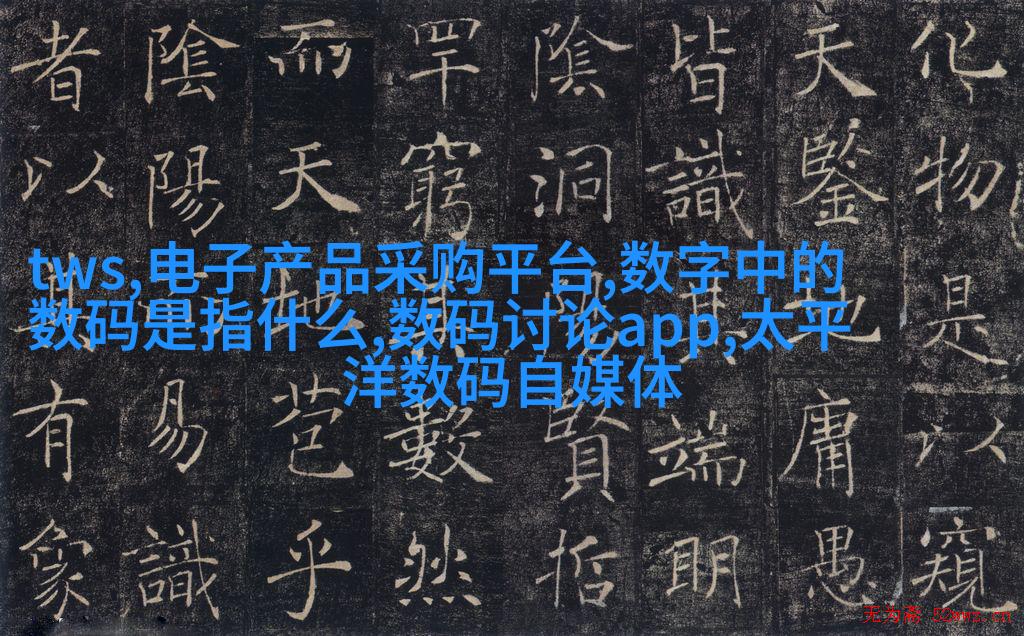 化物是以窺
天鑒地庸愚
皆識其端明
陰洞陽賢哲
罕窮其數然
而天地苞乎
陰陽而易識
者以其有象
tws,电子产品采购平台,数字中的
数码是指什么,数码讨论app,太平
洋数码自媒体
无为斋 52wwz.cn